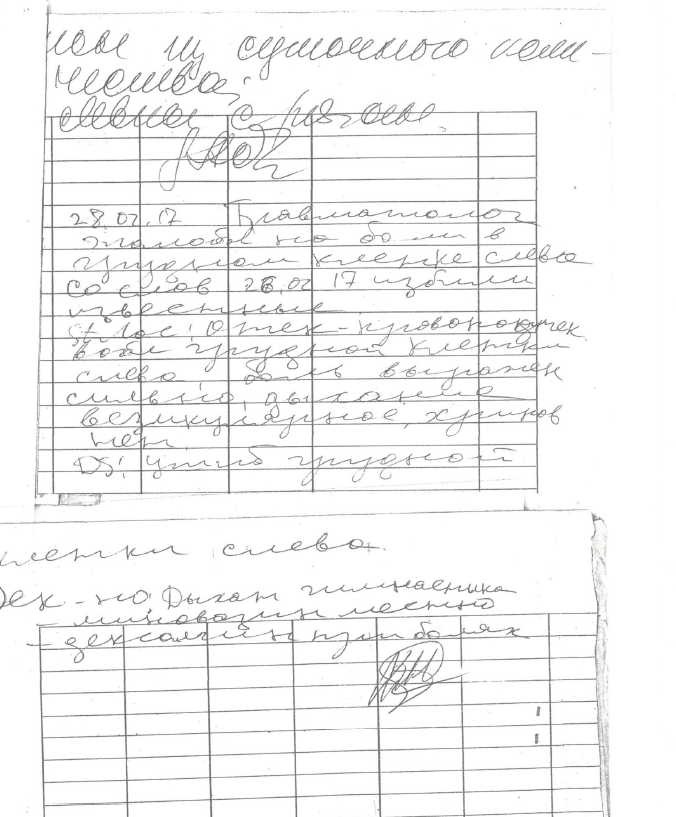 из суточного коли-
чества.
28.02.17 Травматолог
жалобы на боли в
грудном клетке слева
со слов 26.02 17 избили
известные
St loc: Отек-кровоподтек
в обл грудной клетки
слева, боль выражен
сильно, дыхание
везикулярное, хрипов
нет
DS: Ушиб грудной
клетки слева.
Рек-но: Дыхат гимнастика
- меновазин местно
- дексалгин при болях